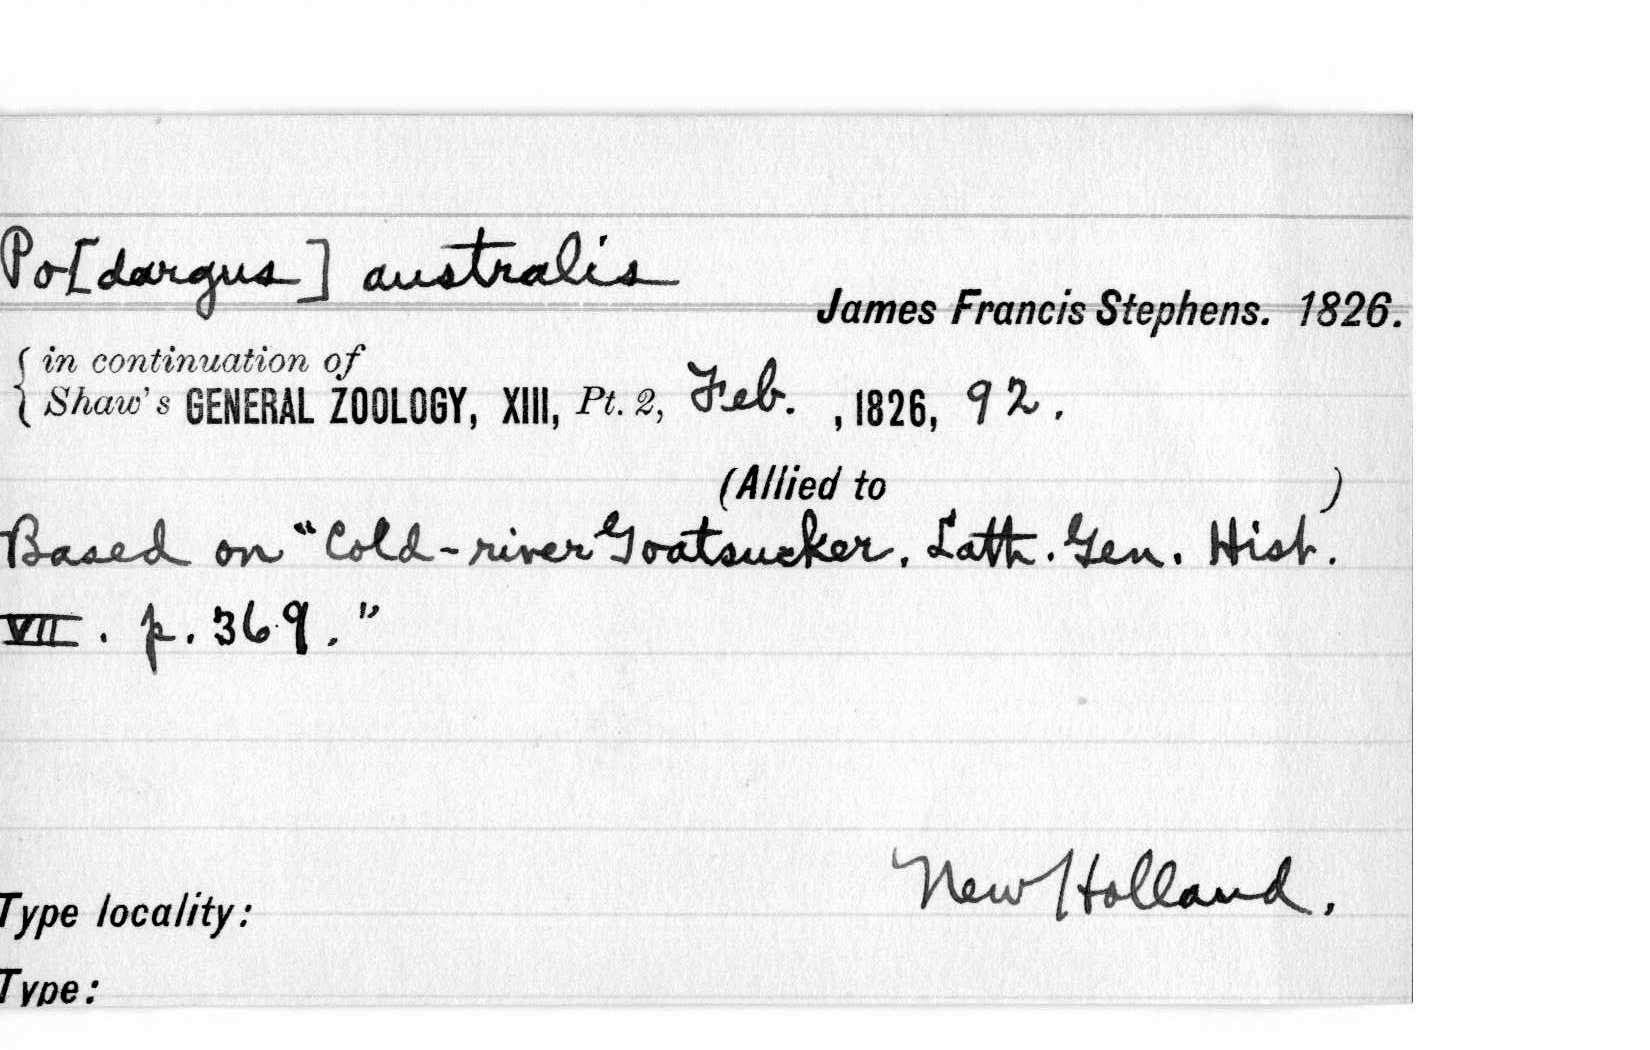 Po[dargus] australis
James Francis Stephens. 1826.
{ in continuation of
Shaw's GENERAL ZOOLOGY, XIII, Pt. 2, Feb. , 1826, 92.
(Allied to )
Based on "Cold-river Goatsucker, Lath. Gen. Hist.
VII. p. 369."
New Holland,
Type locality:
Type: